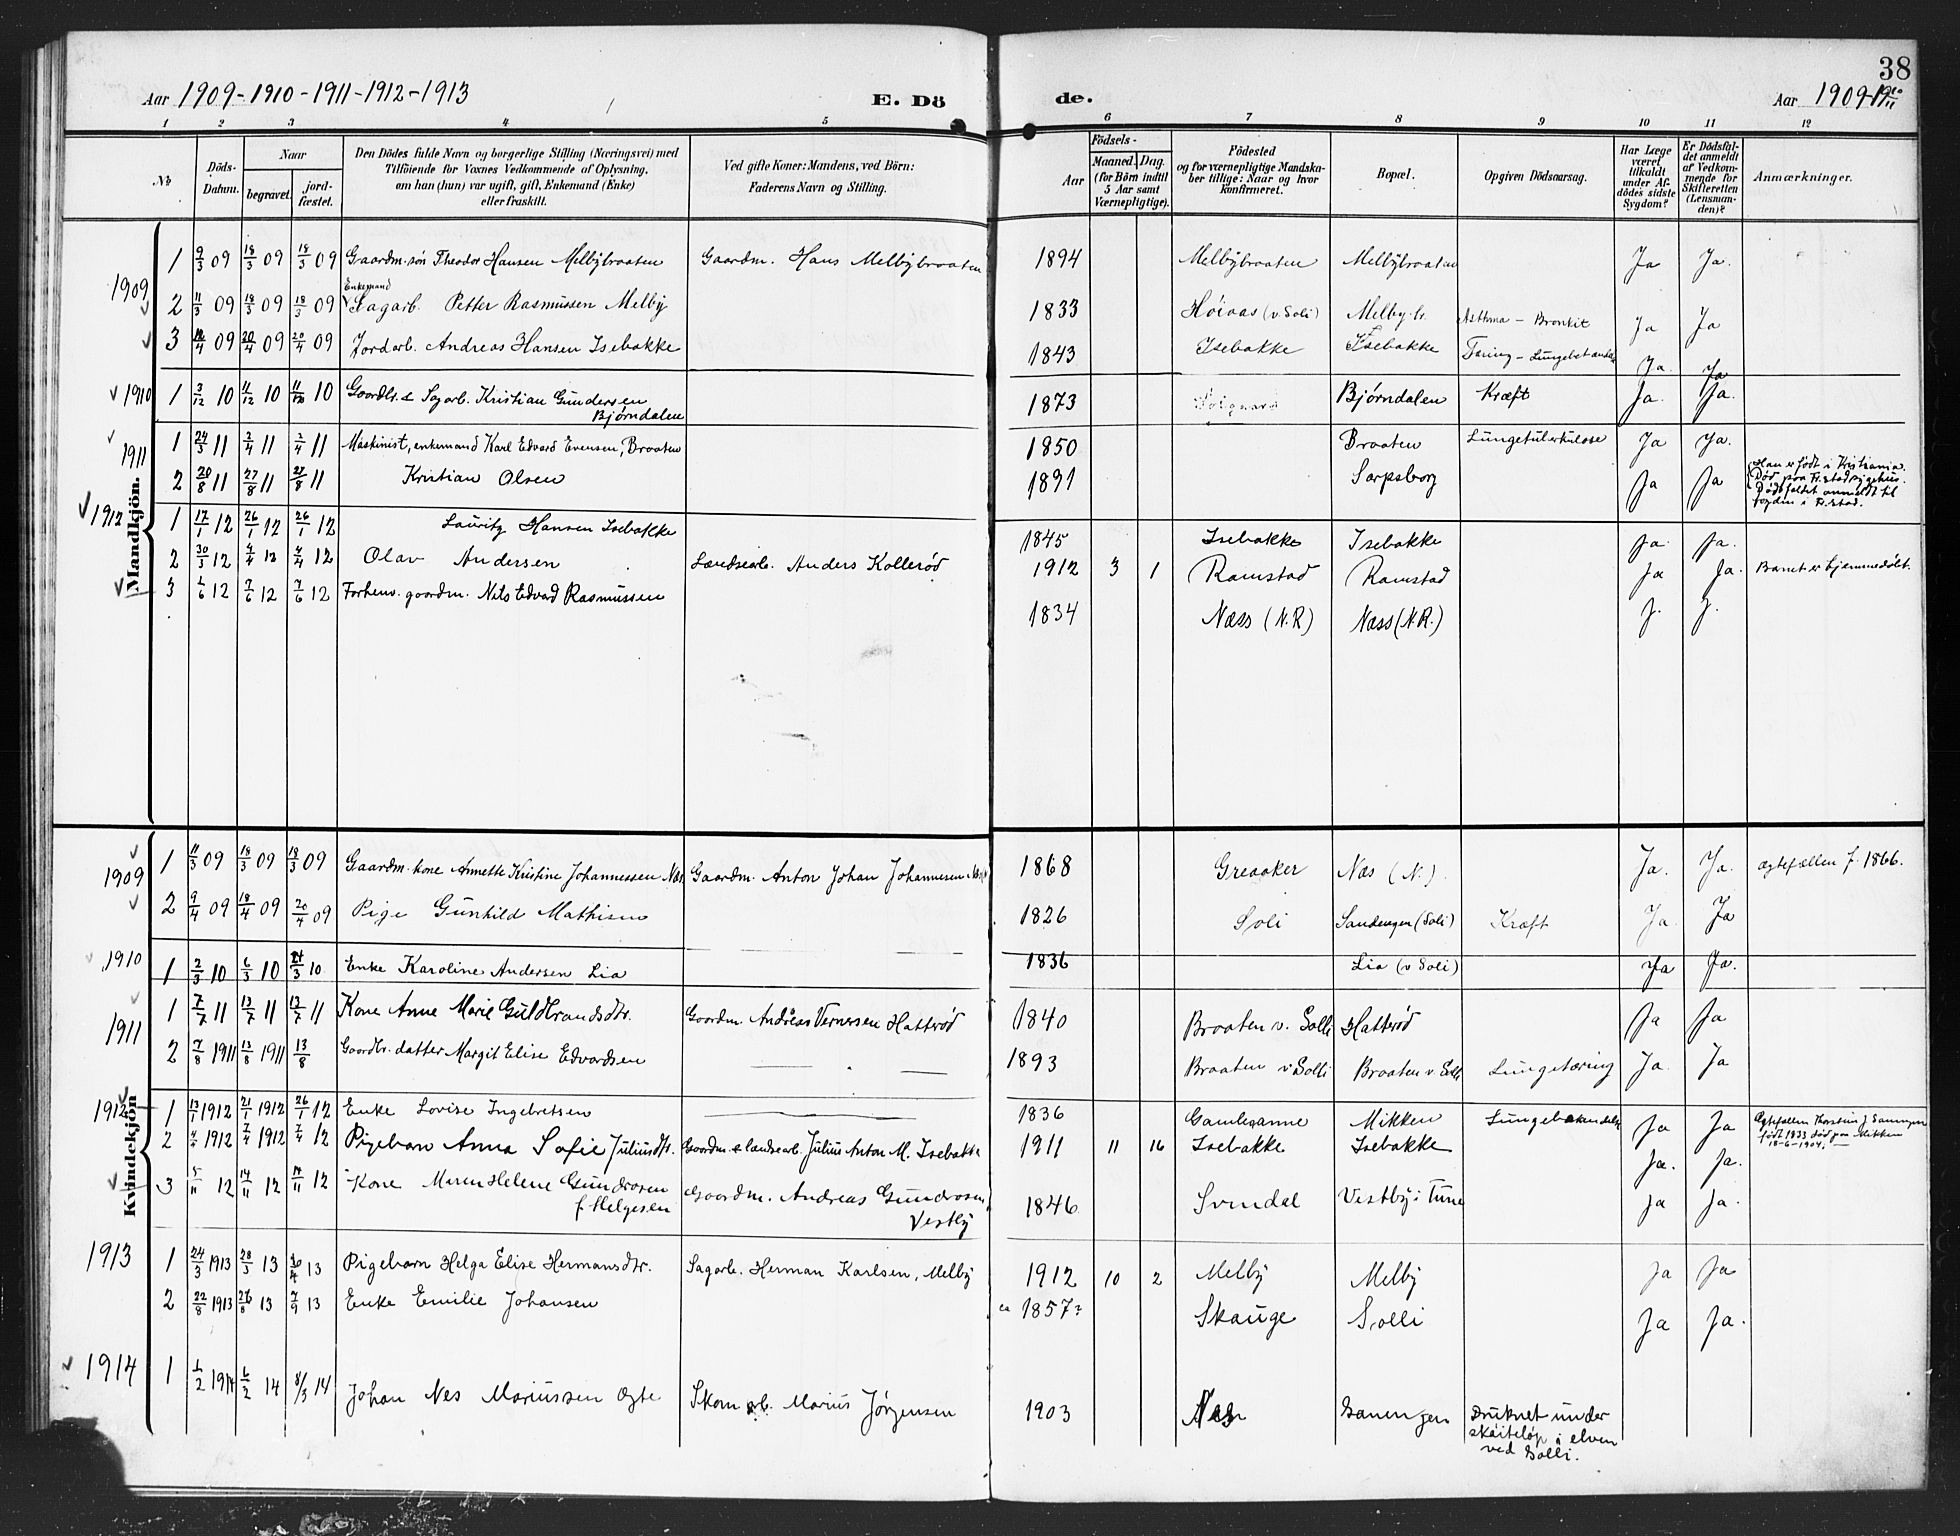 38
Aar 1909-1910-1911-1912-1913 E. Dö de. Aar 1909-19
1 2 3 4 5 6 7 8 9 10 11 12
No
Döds-Datum.
Naar
begravet.
jord-fæstet.
Den Dödes fulde Navn og borgerlige Stilling (Næringsvei) med
Tilföiende for Voxnes Vedkommende af Oplysning,
om han (hun) var ugift, gift, Enkemand (Enke)
eller fraskilt.
Ved gifte Koner: Mandens, ved Börn:
Faderens Navn og Stilling.
Födsels-
Aar
Maaned. Dag.
(for Börn indtil 5 Aar samt Værnepligtige).
Födested
og for værnepligtige Mandska-
ber tillige: Naar og hvor
konfirmeret.
Bopæl.
Opgiven Dödsaarsag.
Har Læge været tilkaldt under Af-dödes sidste Sygdom?
Er Dödsfal-det anmeldt af Vedkom-mende for Skifteretten (Lensman-den)?
Anmærkninger.
Mandkjön.
1909
1 9/3 09 18/3 09 18/3 09 Gaardm. søn Theodor Hansen Melbybraaten Gaardm. Hans Melbybraaten 1894 Melbybraaten Melbybraaten Ja Ja.
Enkemand
2 11/3 09 18/3 09 18/3 09 Sagarb. Petter Rasmussen Melby 1833 Høiaas (v. Soli) Melby Asthma - Bronkit Ja Ja
3 09 20/4 09 20/4 09 Jordarb. Andreas Hansen Isebakke 1843 Isebakke Isebakke Tæring - Ja. Ja
1910
1 3/12 10 11/12 10 11/12 10 Gaardbr. & Sagarb. Kristian Gundersen
Bjørndalen 1873 Bjørndalen Kræft Ja. Ja.
1911
1 24/3 11 2/4 11 2/4 11 Maskinist, enkemand Karl Edvard Evensen, Braaten 1850 Braaten Lungetuberkulose Ja Ja.
2 20/8 11 27/8 11 27/8 11 Kristian Olsen 1891 Sarpsborg Ja Ja
Han er født i Kristiania.
Død paa Fr.stad sygehus.
Dødsfaldet anmeldt til
fogden i Fr.stad.
1912
1 17/1 12 26/1 12 26/1 12 Lauritz Hansen Isebakke 1845 Isebakke Isebakke Ja. Ja.
2 30/3 12 4/4 12 4/4 12 Olav Andersen Landsarb. Anders Kollerød 1912 3 1 Ramstad Ramstad Ja Ja. Barnet er hjemmedøbt.
3 1/6 12 7/6 12 7/6 12 Forhenv. gaardm. Nils Edvard Rasmussen 1834 Næss (N.R) Næss (N.R.) J. J.
Kvindekjön
1909
1 11/3 09 18/3 09 18/3 09 Gaardm. kone Annette Kristine Johannessen Næs Gaardm. Anton Johan Johannesen 1868 Greaaker Næs (N.) Ja. Ja. Ægtefællen f. 1866.
2 9/4 09 18/4 09 20/4 09 Pige Gunhild Mathisen 1826 Soli Sandengen (Soli) Kræft Ja. Ja
1910
1 2/3 10 6/3 10 21/3 10 Enke Karoline Andersen Lia 1836 Lia (v Soli) Ja Ja.
1911
1 7/7 11 13/7 11 13/7 11 Kone Anne Marie Guldbrandsdtr. Gaardm. Andreas Vernersen Hatterød 1840 Braaten v. Solli Hatterød Ja Ja
2 7/8 1911 13/8 1911 13/8 Gaardbr. datter Margit Elise Edvardsen 1893 Braaten v Solli Braaten v. Solli Lungetæring Ja. Ja
1912
1 13/1 1912 21/1 1912 26/1 12 Enke Lovise Ingebretsen 1836 Gamleganne Mikken Ja Ja
Egtefællen Thorstein J. Sanengen
født 1833 død paa Mikken
18-6-1904.
2 4/4 1912 7/4 1912 7/4 12 Pigebarn Anna Sofie Juliusdtr. Gaardm & landsarb. Julius Anton M. Isebakke 1911 11 16 Isebakke Isebakke Ja. Ja.
3 5/11 12 14/11 12 14/11 12 Kone Maren Helene Gundrosen
f. Helgesen Gaardm. Andreas Gundrosen,
Vestby 1846 Svindal Vestby i Tune Ja Ja.
1913
1 24/3 1913 28/3 13 20/4 13 Pigebarn Helga Elise Hermansdtr. Sagarb. Herman Karlsen, Melby 1912 10 2 Melby Melby Ja Ja
2 22/8 1913 26/8 13 7/9 13 Enke Emilie Johansen ca 1857? Skauge Solli Ja Ja.
1914
1 1/2 1914 6/2 14 8/3 14 Johan Nes Mariussen Ægte Skomarb. Marius Jørgensen 1903 Nes Sanengen Druknet under
skøiteløp i elven
ved Solli.